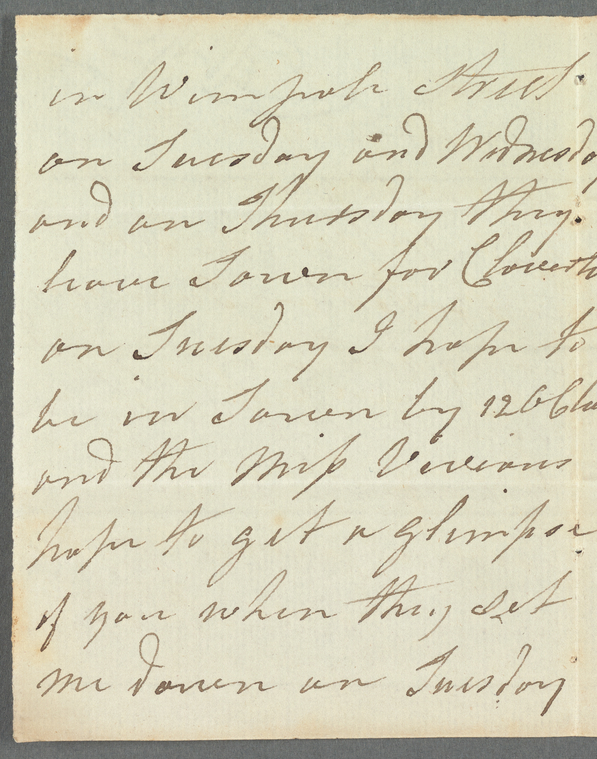 in Wimpole Street
on Tuesday and Wednesday
and on Thursday they
leave Town for Claverto
on Tuesday I hope to
be in Town by 12 O Clo
and the Miss Vivians
hope to get a glimpse
of you when they set
me down on Tuesday